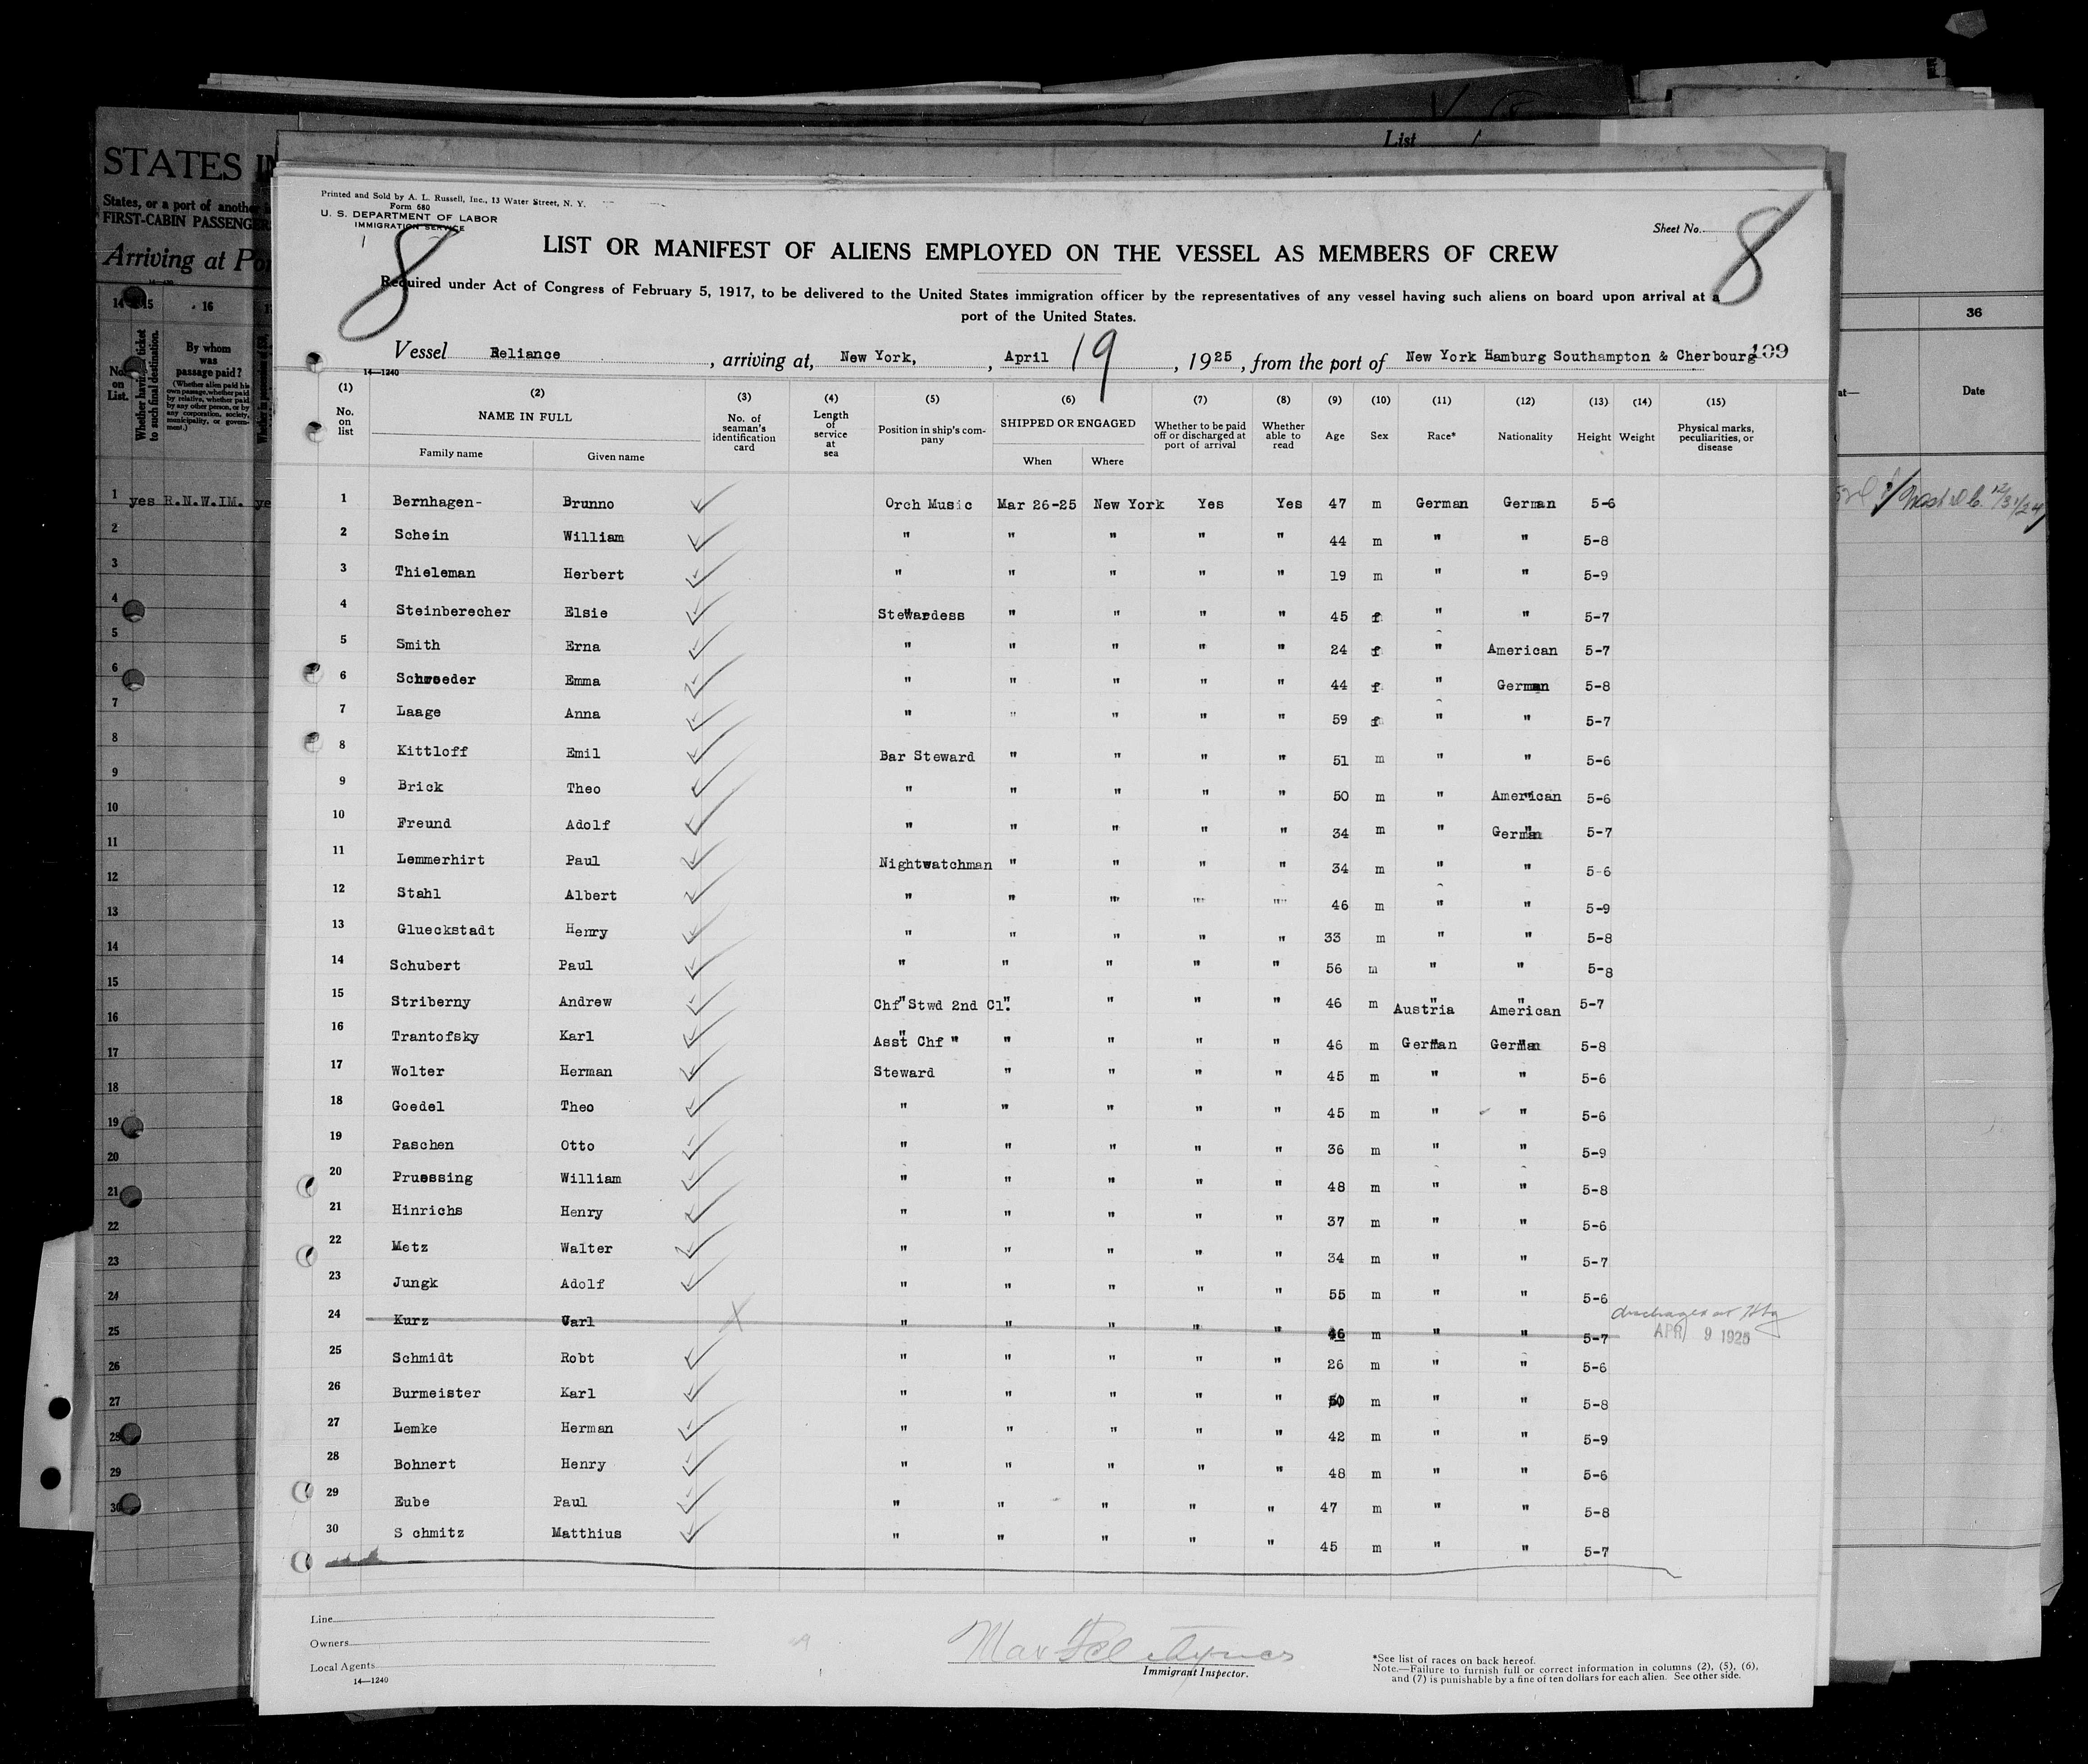 List
STATES IN
States, or a port of another
FIRST-CABIN PASSENGER
Arriving at Por
14 15 16
No. on List.
Whether having a ticket to such final destination.
By whom was passage paid?
(Whether alien paid his own passage, whether paid by relative, whether paid by any other person, or by any corporation, society, municipality, or government.)
1 yes R.N.W.IM. ye
2
3
4
5
6
7
8
9
10
11
12
13
14
15
16
17
18
19
20
21
22
23
24
25
26
27
28
29
30
36
Date
Printed and Sold by A. L. Russell, Inc., 13 Water Street, N. Y.
Form 680
U. S. DEPARTMENT OF LABOR
IMMIGRATION SERVICE
8
Sheet No. 8
LIST OR MANIFEST OF ALIENS EMPLOYED ON THE VESSEL AS MEMBERS OF CREW
Required under Act of Congress of February 5, 1917, to be delivered to the United States immigration officer by the representatives of any vessel having such aliens on board upon arrival at a
port of the United States.
Vessel Reliance, arriving at, New York, April 19, 1925, from the port of New York Hamburg Southampton & Cherbourg 109
14—1240
(1) (2) (3) (4) (5) (6) (7) (8) (9) (10) (11) (12) (13) (14) (15)
No. on list NAME IN FULL Family name Given name No. of seaman's identification card Length of service at sea Position in ship's company SHIPPED OR ENGAGED When Where Whether to be paid off or discharged at port of arrival Whether able to read Age Sex Race* Nationality Height Weight Physical marks, peculiarities, or disease
1 Bernhagen- Brunno Orch Music Mar 26-25 New York Yes Yes 47 m German German 5-6
2 Schein William " " " " " 44 m " " 5-8
3 Thieleman Herbert " " " " " 19 m " " 5-9
4 Steinberecher Elsie Stewardess " " " " 45 f " " 5-7
5 Smith Erna " " " " " 24 f " American 5-7
6 Schroeder Emma " " " " " 44 f " German 5-8
7 Laage Anna " " " " " 59 f " " 5-7
8 Kittloff Emil Bar Steward " " " " 51 m " " 5-6
9 Brick Theo " " " " " 50 m " American 5-6
10 Freund Adolf " " " " " 34 m " German 5-7
11 Lemmerhirt Paul Nightwatchman " " " " 34 m " " 5-6
12 Stahl Albert " " " " " 46 m " " 5-9
13 Glueckstadt Henry " " " " " 33 m " " 5-8
14 Schubert Paul " " " " " 56 m " " 5-8
15 Striberny Andrew Chf Stwd 2nd Cl. " " " " 46 m Austria American 5-7
16 Trantofsky Karl Asst Chf " " " " " 46 m German German 5-8
17 Wolter Herman Steward " " " " 45 m " " 5-6
18 Goedel Theo " " " " " 45 m " " 5-6
19 Paschen Otto " " " " " 36 m " " 5-9
20 Pruessing William " " " " " 48 m " " 5-8
21 Hinrichs Henry " " " " " 37 m " " 5-6
22 Metz Walter " " " " " 34 m " " 5-7
23 Jungk Adolf " " " " " 55 m " " 5-6
24 Kurz Carl " " " " " 46 m " " 5-7 discharged at Hbg APR 9 1925
25 Schmidt Robt " " " " " 26 m " " 5-6
26 Burmeister Karl " " " " " 50 m " " 5-8
27 Lemke Herman " " " " " 42 m " " 5-9
28 Bohnert Henry " " " " " 48 m " " 5-6
29 Eube Paul " " " " " 47 m " " 5-8
30 S chmitz Matthius " " " " " 45 m " " 5-7
Line
Owners
Local Agents
14—1240
Max
Immigrant Inspector.
*See list of races on back hereof.
Note.—Failure to furnish full or correct information in columns (2), (5), (6),
and (7) is punishable by a fine of ten dollars for each alien. See other side.